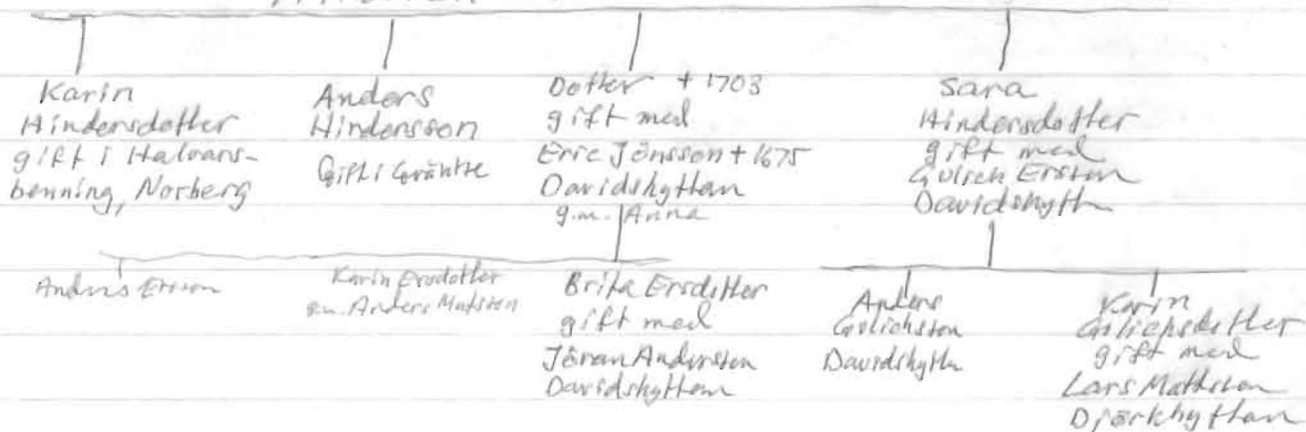 Karin
Hindersdotter
gift i Halvars-
benning, Norberg
Anders
Hindersson
Gift i Gräntze
Dotter + 1703
gift med
Eric Jönsson + 1675
Davidshyttan
g.m. Anna
Sara
Hindersdotter
gift med
Golich Ersson
Davidshytt
Anders Ersson
Karin Ersdotter
g.m. Anders Matsson
Brita Ersdotter
gift med
Jöran Andersson
Davidshyttan
Anders
Golichsson
Davidshytt
Karin
Golichsdotter
gift med
Lars Mattsson
Djärkhyttan